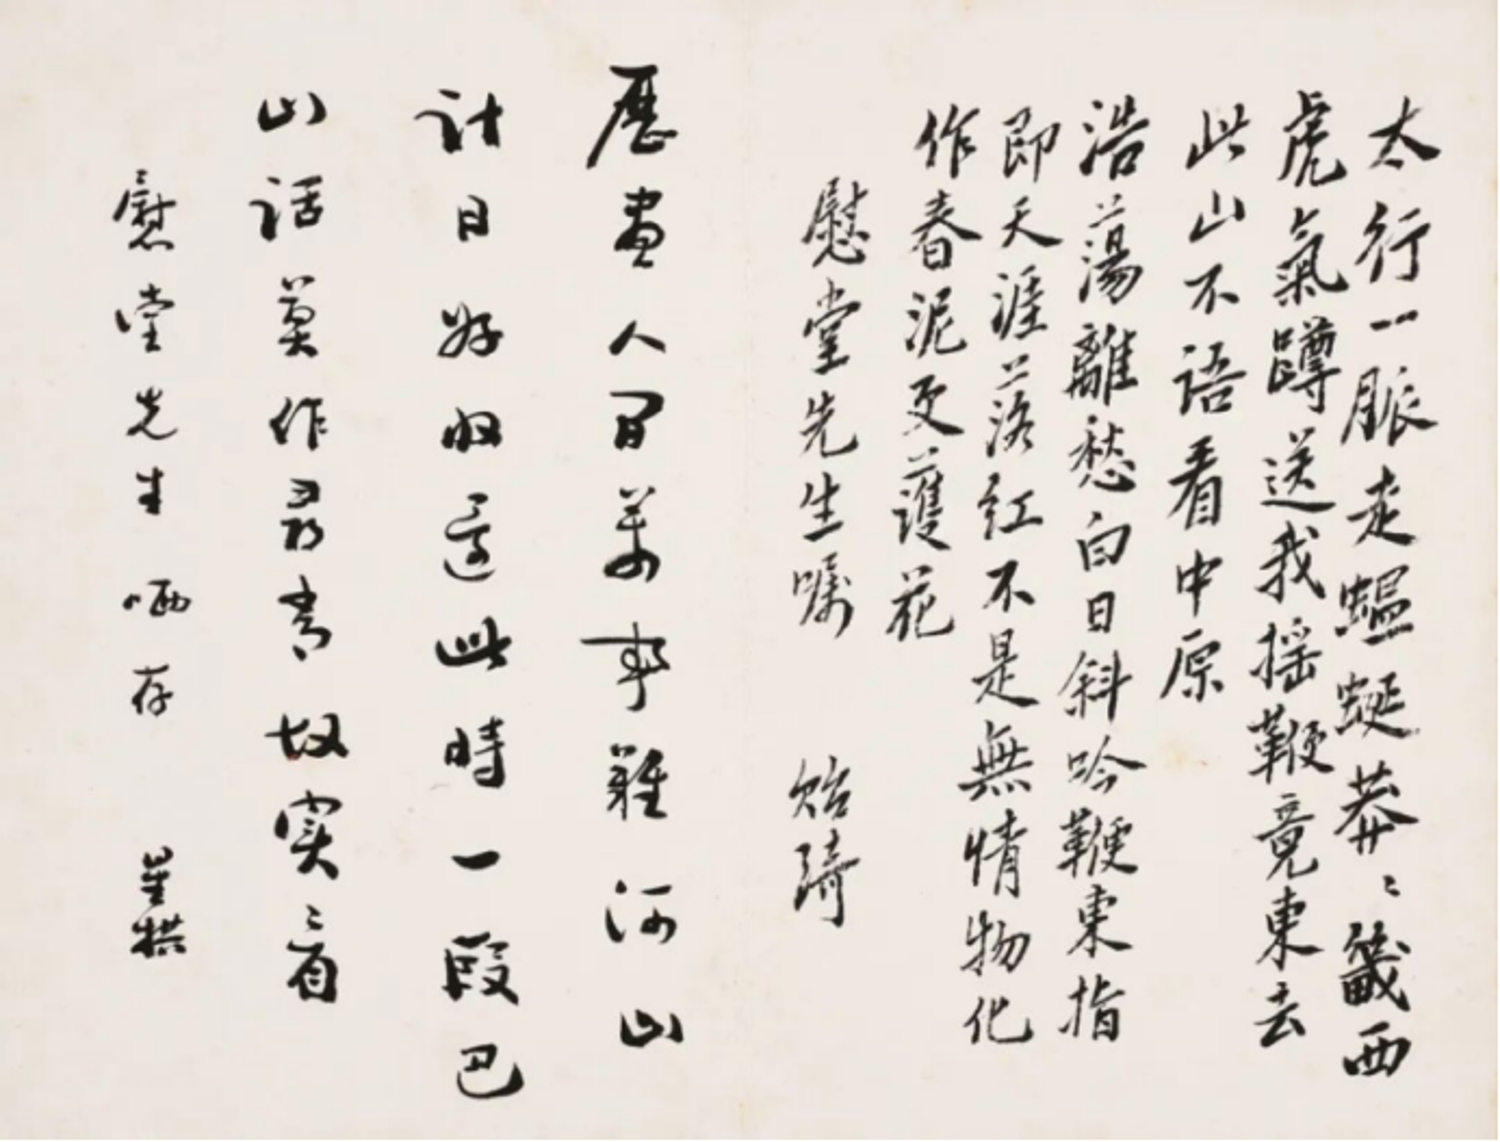 太行一脈走蝹蜒莽〻畿西
虎氣蹲送我搖鞭竟東去
此山不語看中原
浩蕩離愁白日斜吟鞭東指
即天涯落紅不是無情物化
作春泥更護花
慰堂先生嘱 貽琦
歷盡人間萬事難河山
計日好收還此時一段巴
山話莫作尋常故實看
慰堂先生哂存